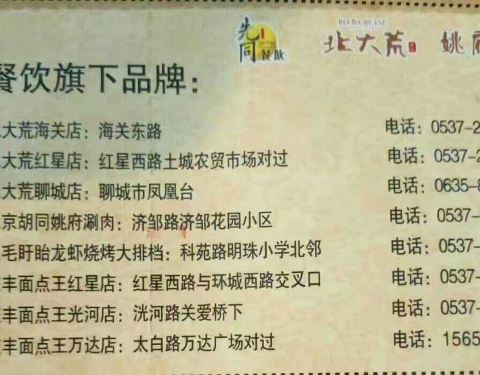 先同餐飲 北大荒 姚府
餐饮旗下品牌：
大荒海关店：海关东路 电话：0537-2
大荒红星店：红星西路土城农贸市场对过 电话：0537-2
大荒聊城店：聊城市凤凰台 电话：0635-8
京胡同姚府涮肉：济邹路济邹花园小区 电话：0537-
毛盱眙龙虾烧烤大排档：科苑路明珠小学北邻 电话：0537-
丰面点王红星店：红星西路与环城西路交叉口 电话：0537-
丰面点王光河店：洸河路关爱桥下 电话：0537-
丰面点王万达店：太白路万达广场对过 电话：1565